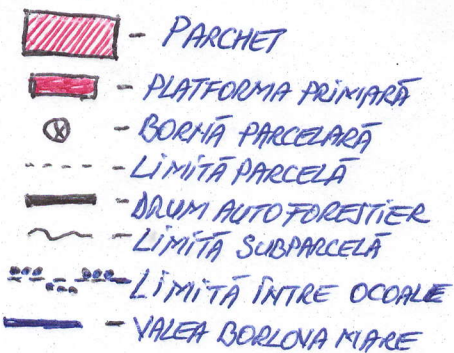 - PARCHET
- PLATFORMA PRIMARĂ
- BORNĂ PARCELARĂ
- LIMITĂ PARCELĂ
- DRUM AUTOFORESTIER
- LIMITĂ SUBPARCELĂ
- LIMITĂ ÎNTRE OCOALE
- VALEA BORLOVA MARE